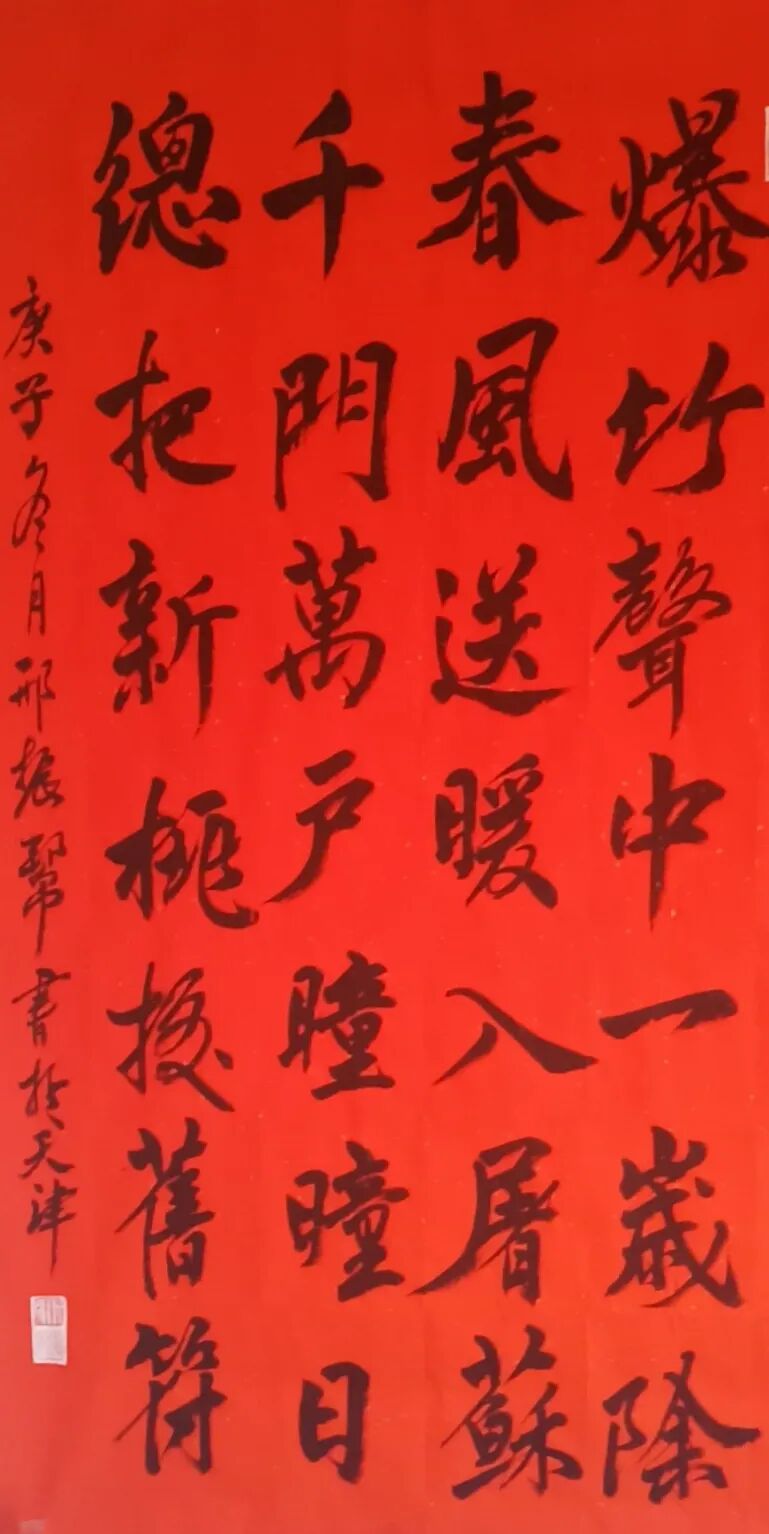 爆竹聲中一歲除
春風送暖入屠蘇
千門萬户曈曈日
總把新桃換舊符
庚子冬月邢振幫書於天津